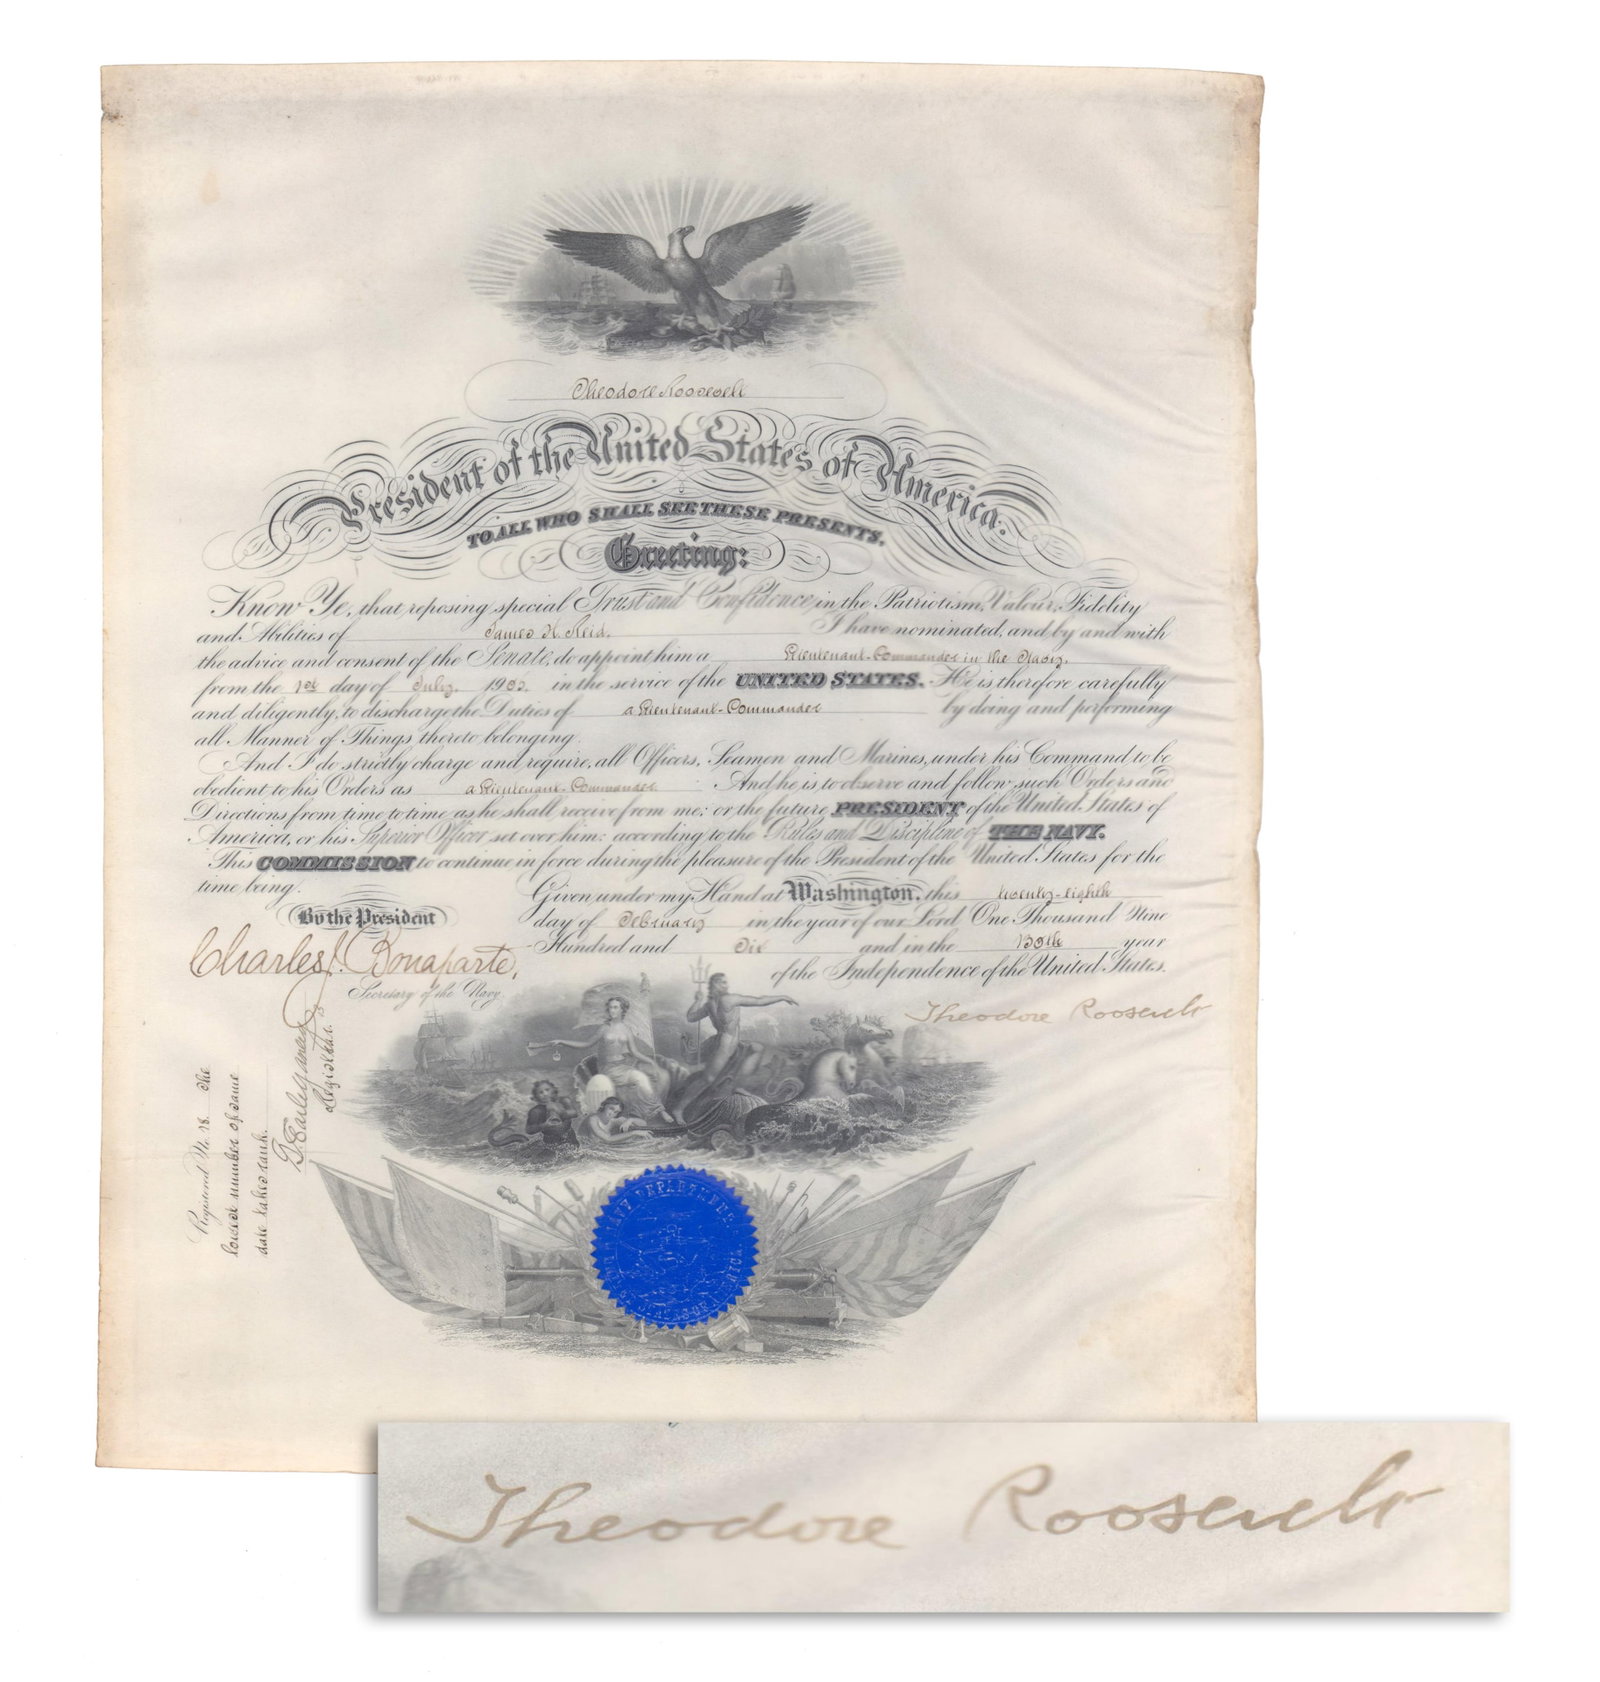 Theodore Roosevelt
President of the United States of America.
TO ALL WHO SHALL SEE THESE PRESENTS,
Greeting:
Know Ye, that reposing special Trust and Confidence in the Patriotism, Valour, Fidelity
and Abilities of James H. Reid. I have nominated, and by and with
the advice and consent of the Senate, do appoint him a Lieutenant-Commander in the Navy,
from the 1st day of July, 1905, in the service of the UNITED STATES. He is therefore carefully
and diligently, to discharge the Duties of a Lieutenant-Commander by doing and performing
all Manner of Things thereto belonging.
And I do strictly charge and require, all Officers, Seamen and Marines, under his Command to be
obedient to his Orders as a Lieutenant-Commander And he is to observe and follow, such Orders and
Directions from time to time as he shall receive from me; or the future PRESIDENT of the United States of
America, or his Superior Officer set over him: according to the Rules and Discipline of THE NAVY.
This COMMISSION to continue in force during the pleasure of the President of the United States for the
time being.
Given under my Hand at Washington, this twenty-eighth
day of February in the year of our Lord One Thousand Nine
Hundred and Six and in the 130th year
of the Independence of the United States.
By the President
Charles J. Bonaparte,
Secretary of the Navy.
Theodore Roosevelt
Registered No. 78. The
lowest number of same
date takes rank.
Register
NAVY DEPARTMENT
UNITED STATES OF AMERICA
Theodore Roosevelt